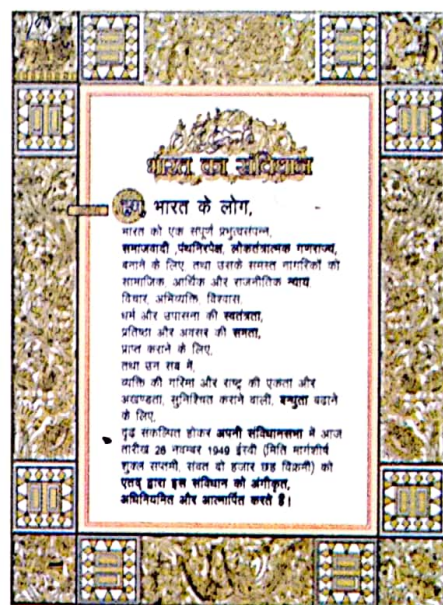 भारत का संविधान
हम, भारत के लोग,
भारत को एक संपूर्ण प्रभुत्वसंपन्न,
समाजवादी ,पंथनिरपेक्ष, लोकतंत्रात्मक गणराज्य,
बनाने के लिए, तथा उसके समस्त नागरिकों को
सामाजिक, आर्थिक और राजनीतिक न्याय,
विचार, अभिव्यक्ति, विश्वास,
धर्म और उपासना की स्वतंत्रता,
प्रतिष्ठा और अवसर की समता,
प्राप्त कराने के लिए,
तथा उन सब में,
व्यक्ति की गरिमा और राष्ट्र की एकता और
अखण्डता, सुनिश्चित कराने वाली, बन्धुता बढाने
के लिए,
दृढ संकल्पित होकर अपनी संविधानसभा में आज
तारीख 26 नवम्बर 1949 ईस्वी (मिति मार्गशीर्ष
शुक्ल सप्तमी, संवत दो हजार छह विक्रमी) को
एतद् द्वारा इस संविधान को अंगीकृत,
अधिनियमित और आत्मार्पित करते हैं।